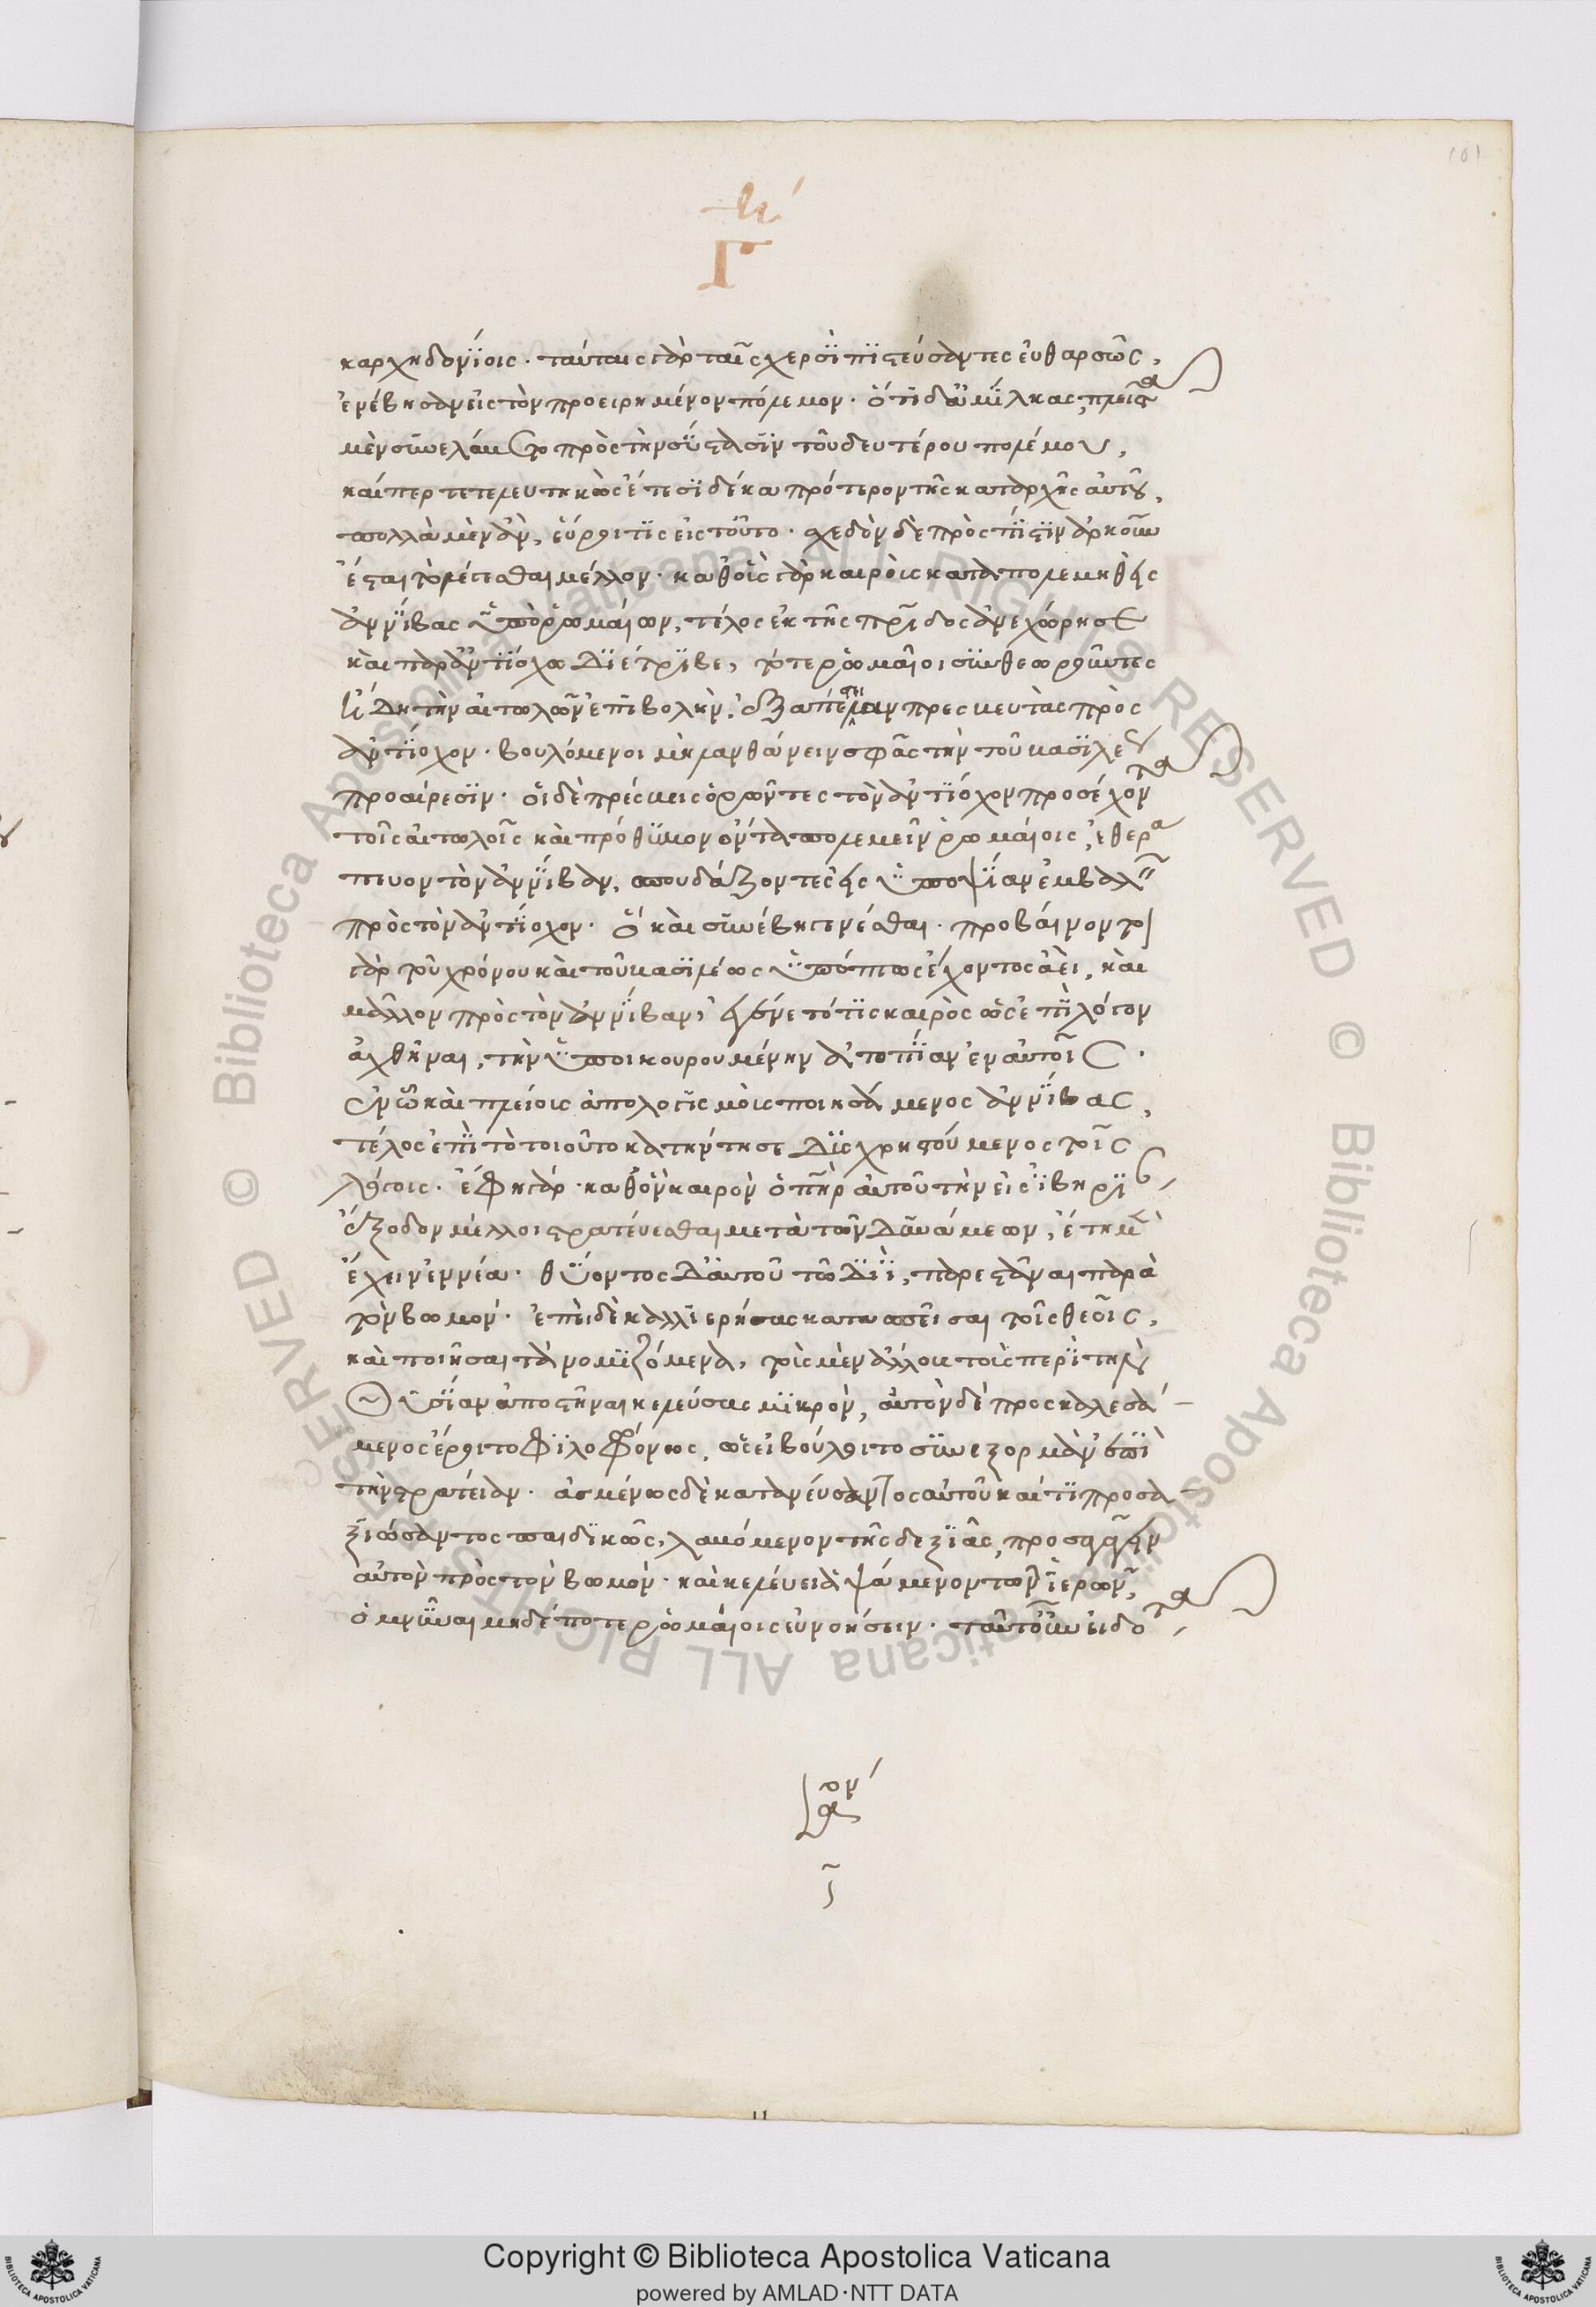 101
Γ
καρχηδονίοις· ταύταις γὰρ ταῖς χερσὶ πιστεύσαντες εὐθαρσῶς,
ἐνέβησαν εἰς τὸν προειρημένον πόλεμον· ὅτι δ' ἀμίλκας, πλεῖστα
μὲν συνελάβετο πρὸς τὴν σύστασιν τοῦ δευτέρου πολέμου,
καίπερ τετελευτηκὼς ἔτεσι δέκα πρότερον τῆς καταρχῆς αὐτοῦ,
πολλὰ μὲν ἂν, εὕροι τις εἰς τοῦτο· σχεδὸν δὲ πρὸς πίστιν ἀρκοῦν
ἔσται τὸ λέγεσθαι μέλλον· καθ' οἷς γὰρ καιροῖς καταπολεμηθεὶς
ἀννίβας ὑπὸ ῥωμαίων, τέλος ἐκ τῆς πατρίδος ἀνεχώρησε
καὶ παρ' ἀντιόχω διέτριβε, τότε ῥωμαῖοι συνθεωροῦντες
ἤδη τὴν αἰτωλῶν ἐπιβολὴν, ἐξαπέστειλαν πρεσβευτὰς πρὸς
ἀντίοχον· βουλόμενοι μὴ λανθάνειν σφᾶς τὴν τοῦ βασιλέως
προαίρεσιν· οἱ δὲ πρέσβεις ὁρῶντες τὸν ἀντίοχον προσέχοντα
τοῖς αἰτωλοῖς καὶ πρόθυμον ὄντα πολεμεῖν ῥωμαίοις, ἐθερά
πευον τὸν ἀννίβαν, σπουδάζοντες εἰς ὑποψίαν ἐμβαλεῖν
πρὸς τὸν ἀντίοχον· ὃ καὶ συνέβη γενέσθαι· προβαίνοντος
γὰρ τοῦ χρόνου καὶ τοῦ βασιλέως ὑπόπτως ἔχοντος ἀεὶ, καὶ
μᾶλλον πρὸς τὸν ἀννίβαν, ἐγένετό τις καιρὸς ὡς ἐπὶ λόγον
ἀχθῆναι, τὴν ὑποικουρουμένην ἀτοπίαν ἐν αὐτοῖς·
ἐν ὧ καὶ πλείοις ἀπολογισμοὺς ποιησάμενος ἀννίβας,
τέλος ἐπὶ τὸ τοιοῦτο κατήντησε δυσχρηστούμενος τοῖς
λόγοις· ἔφη γὰρ· καθ' ὃν καιρὸν ὁ πατὴρ αὐτοῦ τὴν εἰς ἰβηρίαν
ἔξοδον μέλλοι στρατεύεσθαι μετὰ τῶν δυνάμεων, ἔτη μὲν
ἔχειν ἐννέα· θύοντος δ' αὐτοῦ τῶ διὶ, παρεστάναι παρὰ
τὸν βωμόν· ἐπεὶ δὲ καλλιερήσας κατασπεῖσαι τοῖς θεοῖς,
καὶ ποιῆσαι τὰ νομιζόμενα, τοὺς μὲν ἄλλους τοὺς περὶ τὴν
θυσίαν ἀποστῆναι κελεύσας μικρὸν, αὐτὸν δὲ προσκαλεσά
μενος ἔροιτο φιλοφρόνως, ὡς εἰ βούλοιτο συνεξορμᾶν ἐπὶ
τὴν στρατείαν· ἀσμένως δὲ κατανεύσαντος αὐτοῦ καί τι προσα
ξιώσαντος παιδικῶς, λαβόμενον τῆς δεξιᾶς, προσαγαγεῖν
αὐτὸν πρὸς τὸν βωμὸν· καὶ κελεύειν ἁψάμενον τῶν ἱερῶν,
ὀμνύναι μηδέποτε ῥωμαίοις εὐνοήσειν· ταῦτ' οὖν εἰδότα